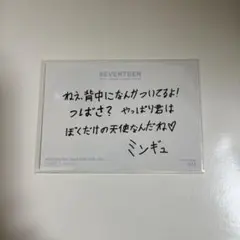 SEVENTEEN
ねえ、背中になんかついてるよ!
つばさ? やっぱり君は
ぼくだけの天使なんだね♡
ミンギュ